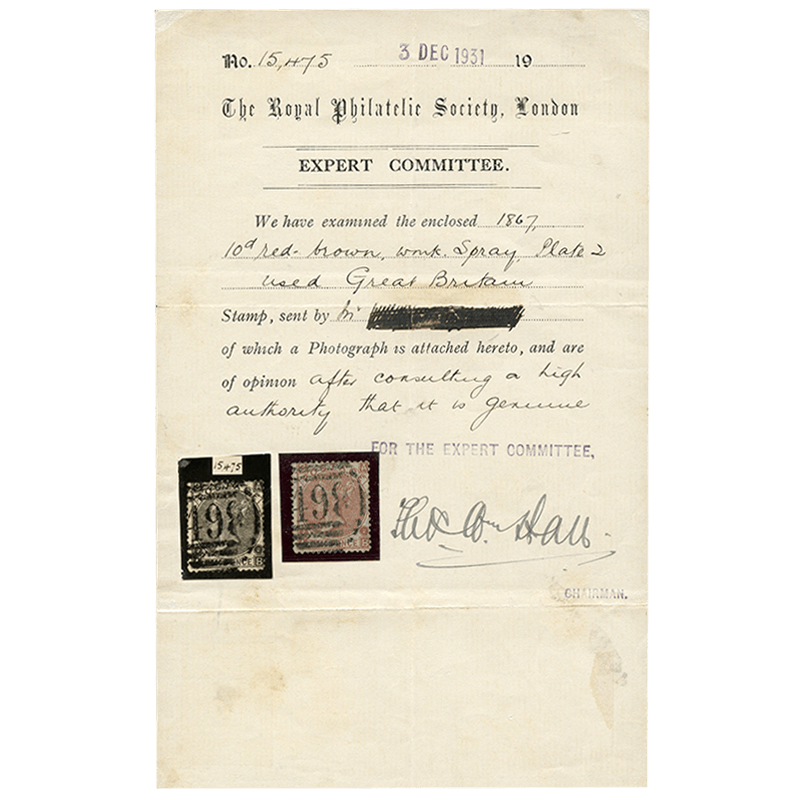 No. 15,475 3 DEC 1931 19
The Royal Philatelic Society, London
EXPERT COMMITTEE.
We have examined the enclosed 1867,
10d red-brown, wmk. Spray, Plate 2
used Great Britain
Stamp, sent by
of which a Photograph is attached hereto, and are
of opinion after consulting a high
authority that it is genuine
FOR THE EXPERT COMMITTEE,
15,475
198
198
CHAIRMAN.